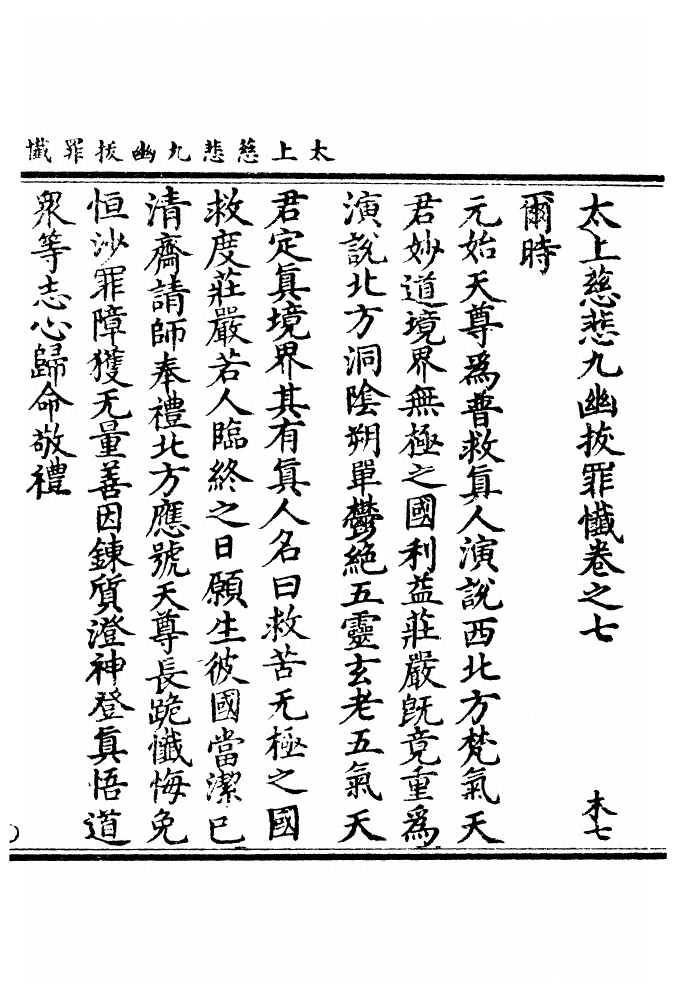 太上慈悲九幽拔罪懺
太上慈悲九幽拔罪懺卷之七
木七
爾時
元始天尊爲普救眞人演說西北方梵氣天
君妙道境界無極之國利益莊嚴旣竟重爲
演說北方洞陰朔單鬱絕五靈玄老五氣天
君定眞境界其有眞人名曰救苦无極之國
救度莊嚴若人臨終之日願生彼國當潔已
清齋請師奉禮北方應號天尊長跪懺悔免
恒沙罪障獲无量善因鍊質澄神登眞悟道
衆等志心歸命敬禮